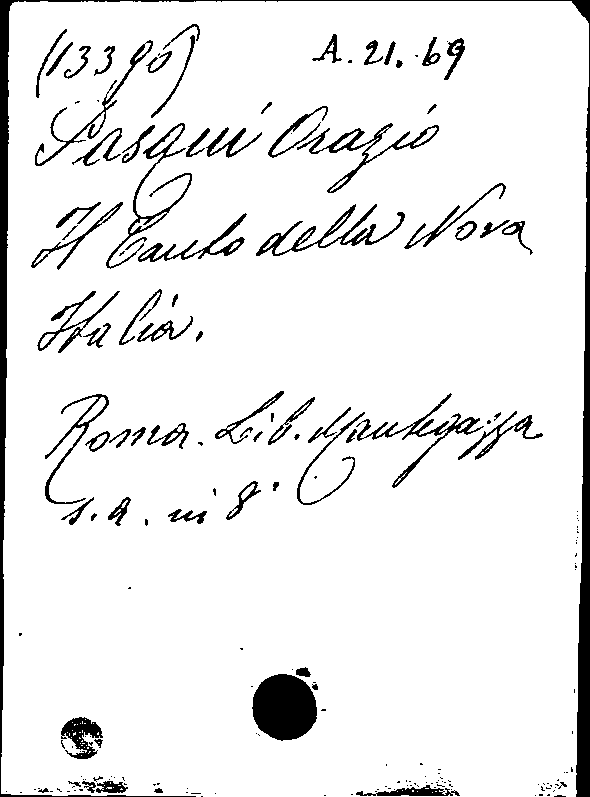 (13396) A.21.69
Pasqui Orazio
Il Canto della Nova
Italia.
Roma. Lib. Mantegazza
s.a. in 8°